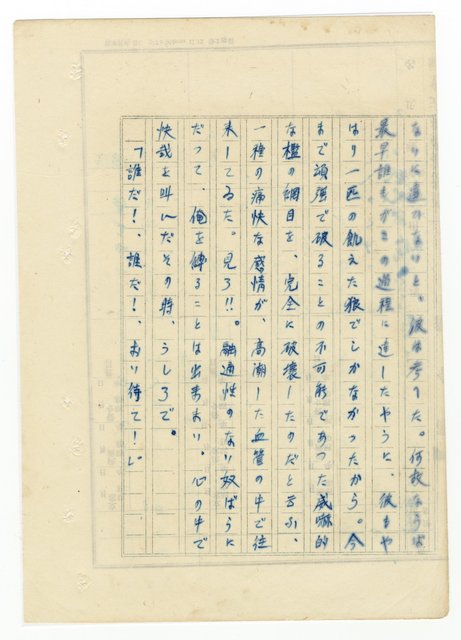 なりに違ひないと、彼は考へた。何故ならば
最早誰もがその過程に達したやうに、彼もや
はり一匹の飢えた狼でしかなかつたから。今
まで頑強で破ることの不可能であつた威嚇的
な檻の網目を、完全に破壊したのだと云ふ、
一種の痛快な感情が、高潮した血管の中で往
来してゐた。見ろ!!。融通性のない奴ばらに
だつて、俺を縛ることは出来まい。心の中で
快哉を叫んだその時、うしろで。
「誰だ！、誰だ！、おい待て！」。